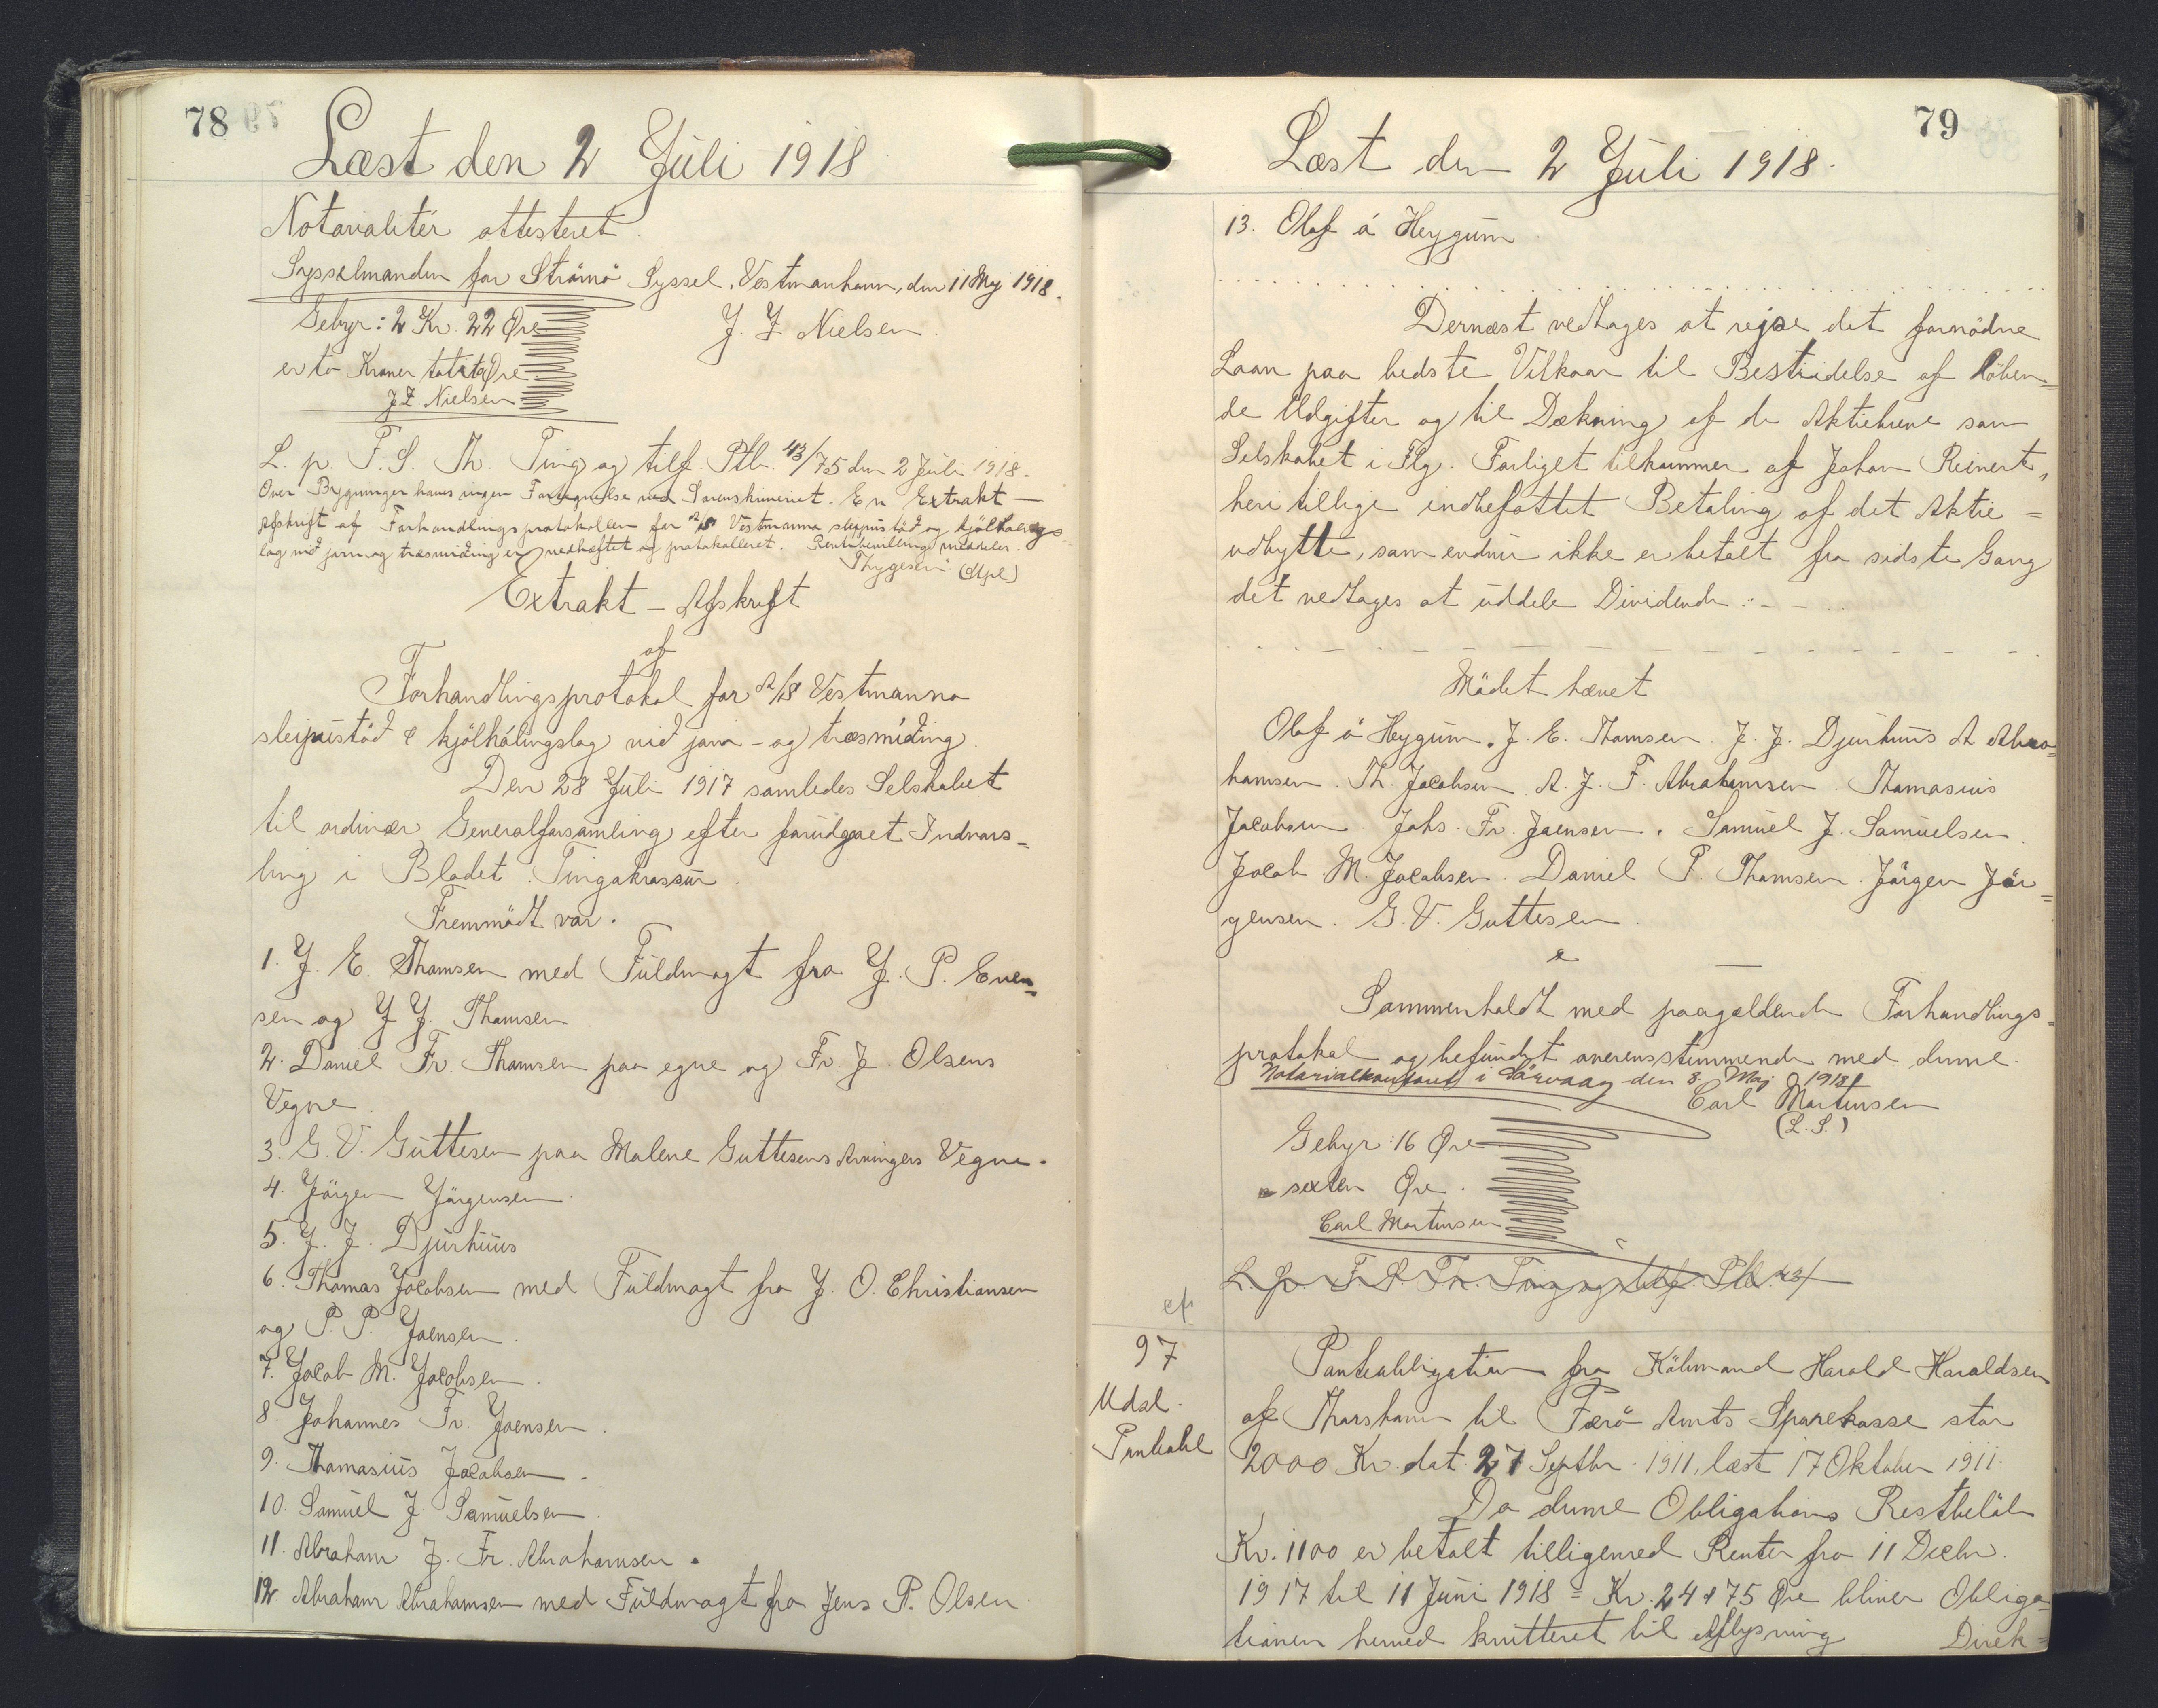 78
Læst den 2 Juli 1918
Notarialiter attesteret.
Sysselmanden for Strömö Syssel, Vestmanhavn, den 11 Maj 1918.
Gebyr: 2 Kr. 22 Øre
J. Z. Nielsen.
er to Kroner totito Øre
J Z. Nielsen
L. p. F. S. Th. Ting og tilf. Ptb. 43/75 den 2 Juli 1918.
Over Bygninger haves ingen Fortegnelse ved Sorenskriveriet. En Extrakt-
Afskrift af Forhandlingsprotokollen for A/S Vestmanna sleipistöð og kjölhalings
lag við jarn og træsmiðing er vedheftet og protokolleret. Rentebevilling meddeles.
Thygesen (Mpl)
Extrakt - Afskrift
af
Forhandlingsprotokol for A/S Vestmanna
sleipistöð & kjölhálingslag við jarn- og træsmiðing.
Den 28 Juli 1917 samledes Selskabet
til ordinær Generalforsamling efter forudgaaet Indvars-
ling i Bladet Tingakrossur.
Fremmödt var.
1. J. E. Thomsen med Fuldmagt fra J. P. Even-
sen og J J. Thomsen
2. Daniel Fr. Thomsen paa egne og Fr. J. Olsens
Vegne.
3. G. V. Guttesen paa Malene Guttesens Arvingers Vegne.
4. Jörgen Jörgensen.
5. J. J. Djurhuus
6. Thomas Jacobsen med Fuldmagt fra J. O. Christiansen
og P. P. Joensen.
7. Jacob M. Jacobsen.
8. Johannes Fr. Joensen.
9. Thomasius Jacobsen.
10. Samuel J. Samuelsen.
11. Abraham J. Fr. Abrahamsen.
12. Abraham Abrahamsen med Fuldmagt fra Jens P. Olsen.
79
Læst den 2 Juli 1918.
13. Olaf á Heygum.
Dernæst vedtages at rejse det fornödne
Laan paa bedste Vilkaar til Bestridelse af löben-
de Udgifter og til Dækning af de Aktiebreve som
Selskabet i Flg. Forliget tilkommer af Johan Reinert,
heri tillige indbefattet Betaling af det Aktie-
udbytte, som endnu ikke er betalt fra sidste Gang
det vedtages at uddele Dividende. - -
Mödet hævet
Olaf á Heygum. J. E. Thomsen. J. J. Djurhuus A Abra-
hamsen. Th. Jacobsen. A. J. F. Abrahamsen. Thomasius
Jacobsen. Johs. Fr. Joensen. Samuel J. Samuelsen.
Jacob M. Jacobsen. Daniel F. Thomsen. Jörgen Jör-
gensen. G. V. Guttesen.
Sammenholdt med paagældende Forhandlings-
protokol og befundet overensstemmende med denne.
Notarialkontoret i Sörvaag den 8. Maj 1918
Carl Mortensen
(L. S.)
Gebyr: 16 Øre
sexten Øre.
Carl Mortensen
L. p. F. S. Th. Ting og tilf. Ptb. 43/
cfr
97
Udsl.
Panteobl
Panteobligation fra Köbmand Harald Haraldsen
af Thorshavn til Færö Amts Sparekasse stor
2000 Kr. dat. 27 Septbr. 1911, læst 17 Oktober 1911.
Da denne Obligations Restbelöb
Kr. 1100 er betalt tilligemed Renter fra 11 Decbr.
1917 til 11 Juni 1918 = Kr. 24,75 Øre bliver Obliga-
tionen hermed kvitteret til Aflysning
Direk-